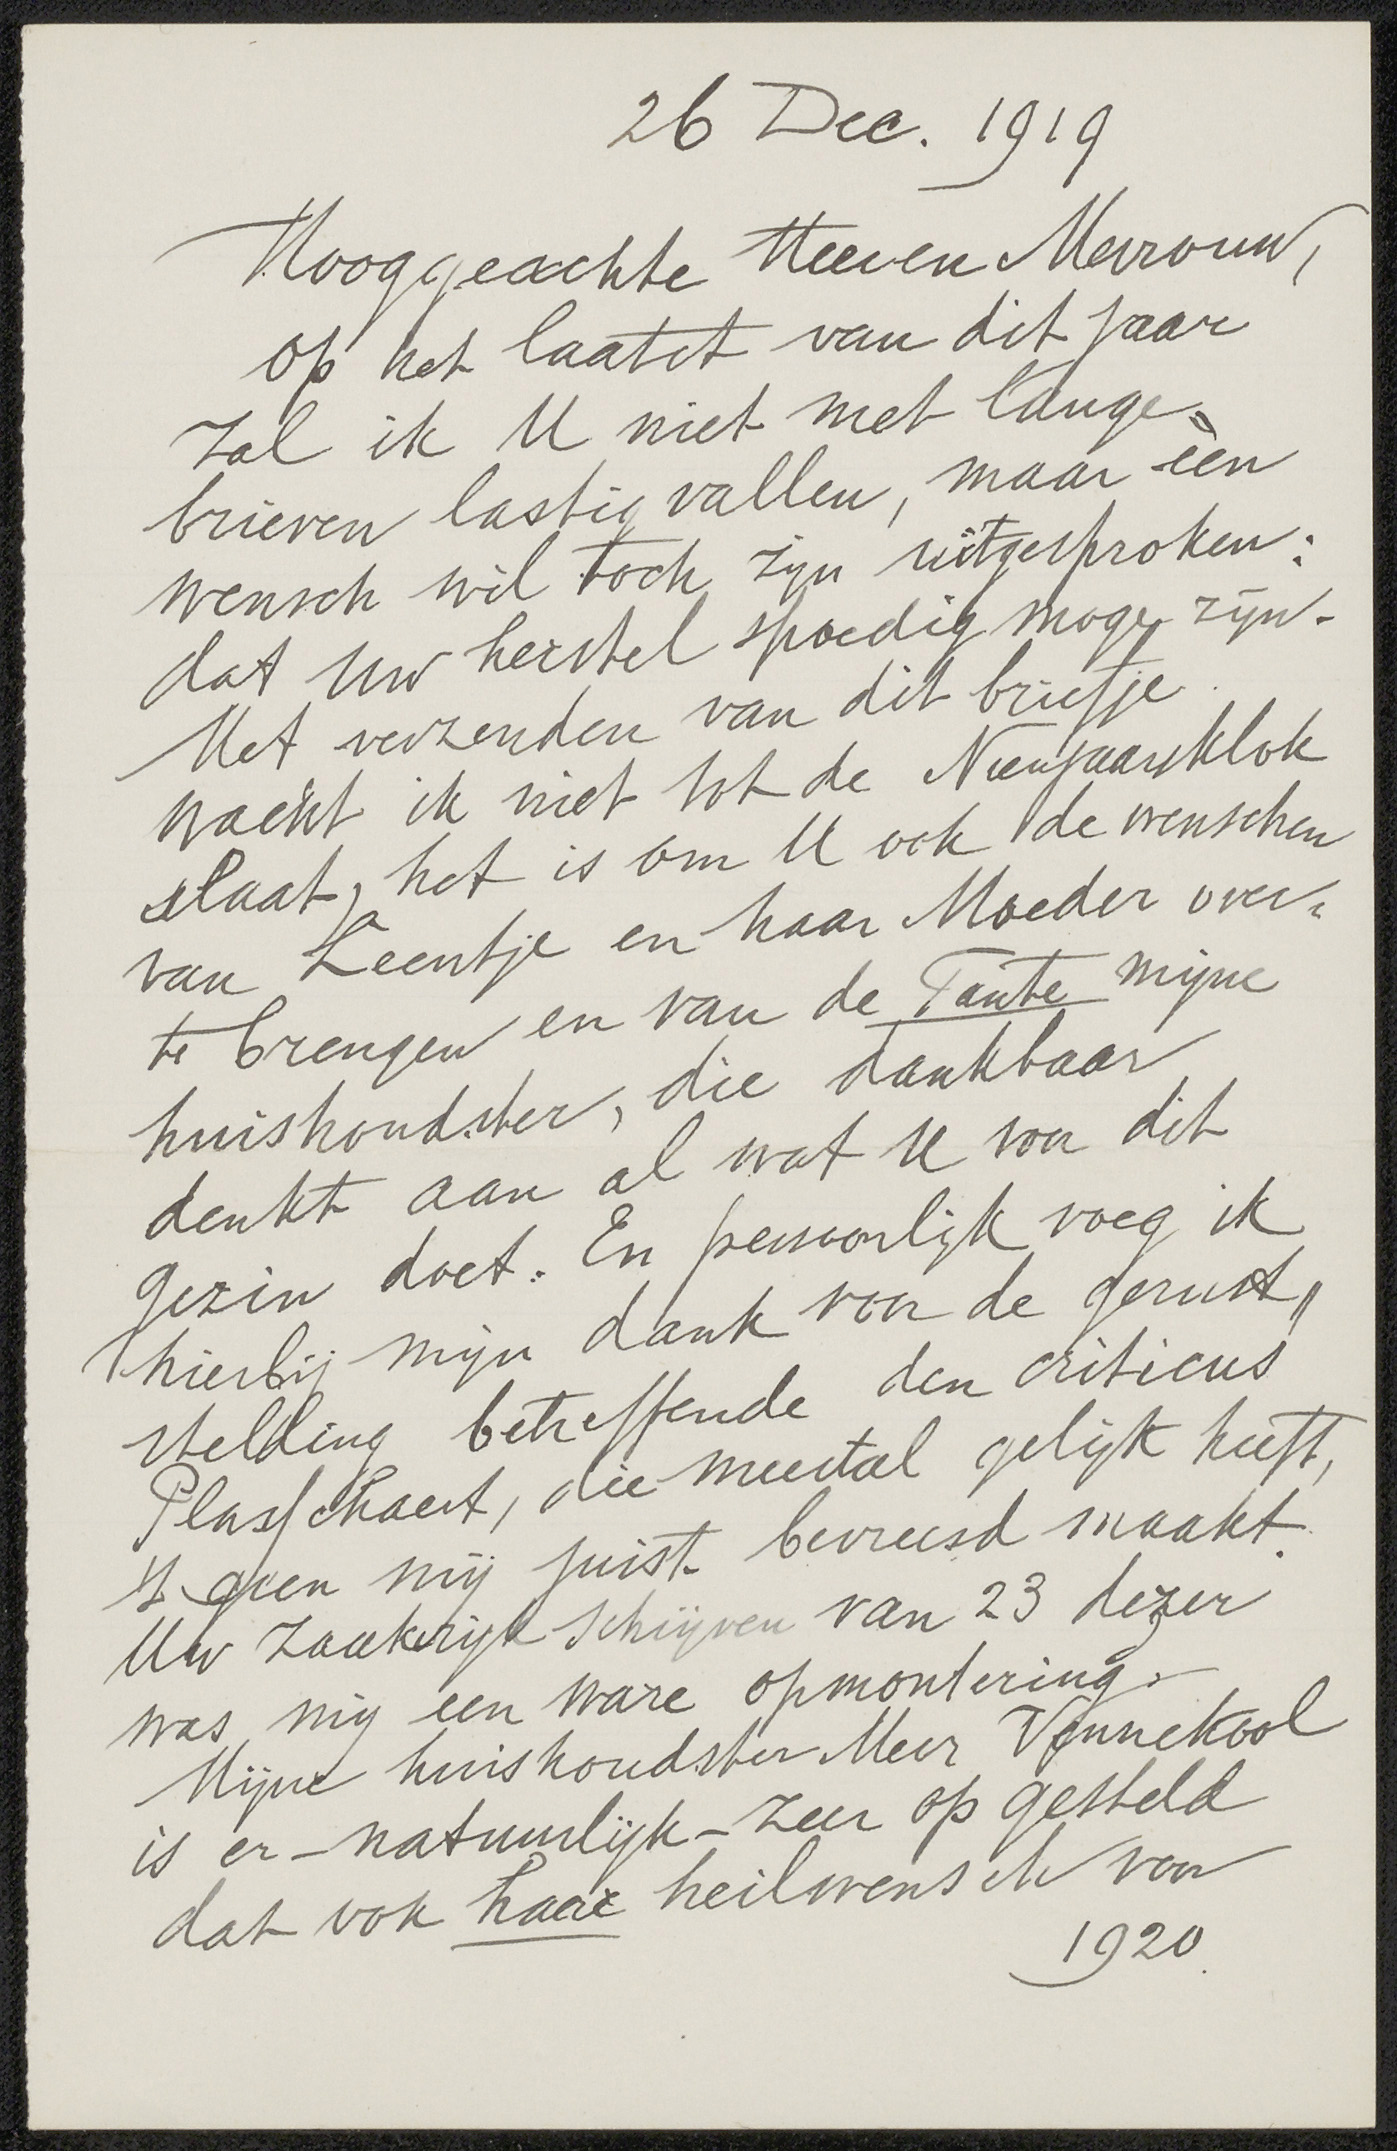 26 Dec. 1919
Hooggeachte Heer en Mevrouw,
op het laatst van dit jaar
zal ik U niet met lange
brieven lastig vallen, maar èèn
wensch wil toch zijn uitgesproken:
dat Uw herstel spoedig moge zijn.
Met verzenden van dit briefje
wacht ik niet tot de Nieuwjaarsklok
slaat, het is om U ook de wenschen
van Leentje en haar Moeder over=
te brengen en van de Tante mijne
huishoudster, die dankbaar
denkt aan al wat U voor dit
gezin doet. En persoonlijk voeg ik
hierbij mijn dank voor de gerust„
stelling betreffende den criticus
Plasschaert, die meestal gelijk heeft,
't geen mij juist bevreesd maakt.
Uw zaakrijk schrijven van 23 dezer
was mij een ware opmontering.
Mijne huishoudster Mevr Vennekool
is er – natuurlijk – zeer op gesteld
dat ook haar heilwensch voor
1920.